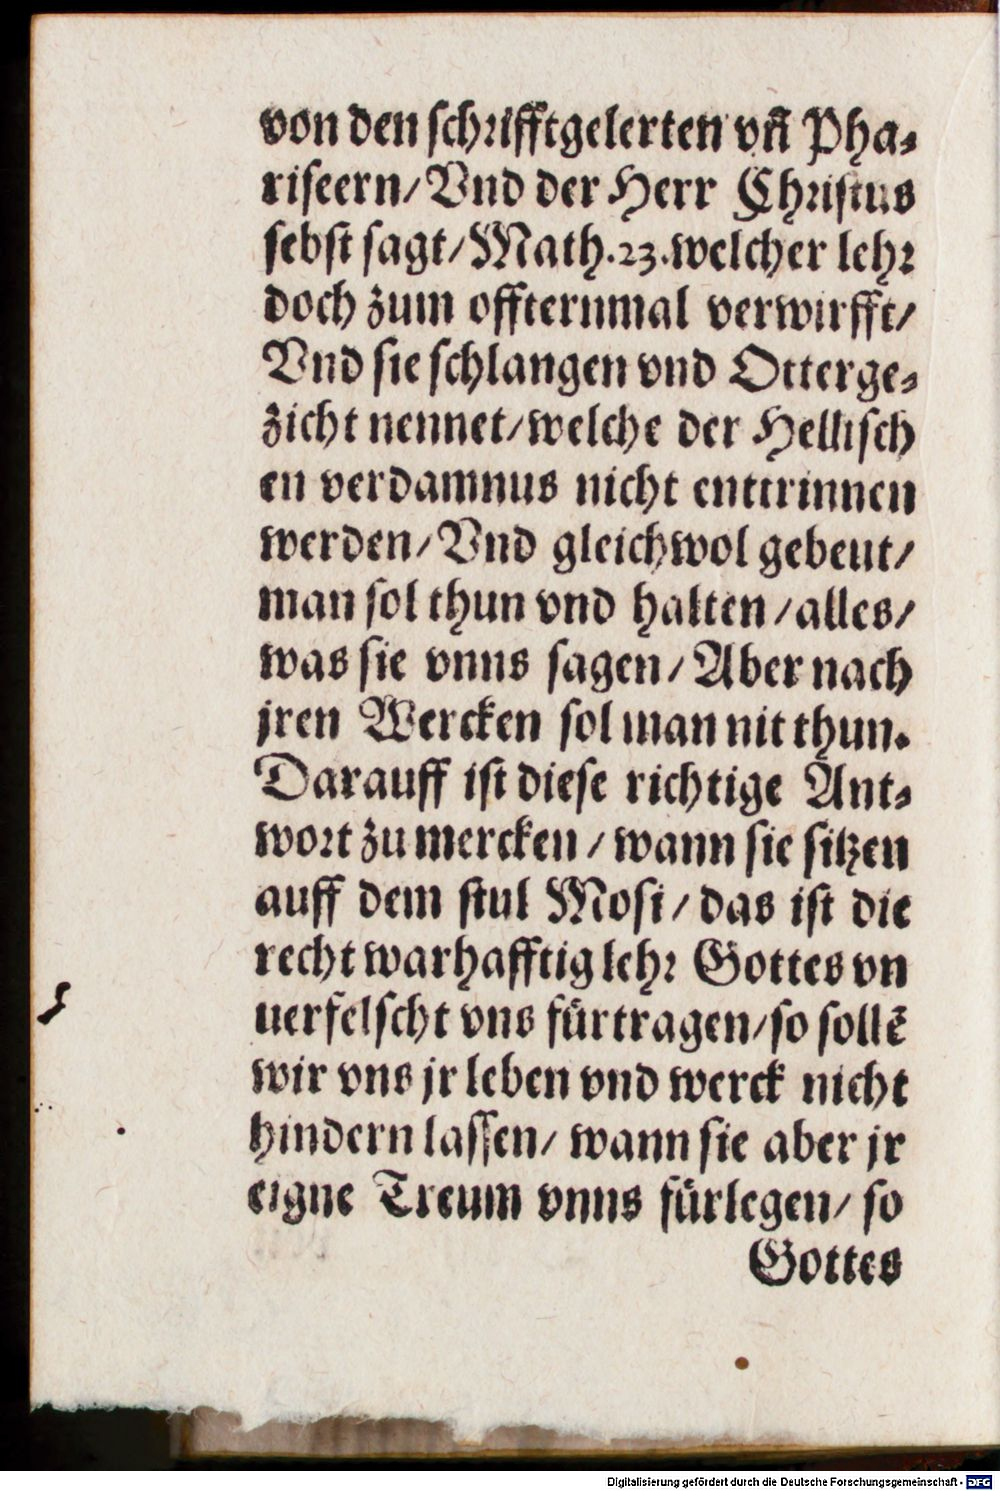 von den schrifftgelerten vñ Pha-
riseern/Vnd der Herr Christus
sebst sagt/Math.23.welcher lehr
doch zum offternmal verwirfft/
Vnd sie schlangen vnd Otterge-
zicht nennet/welche der Hellisch
en verdamnus nicht enttrinnen
werden/Vnd gleichwol gebeut/
man sol thun vnd halten/alles/
was sie vnns sagen/Aber nach
jren Wercken sol man nit thun.
Darauff ist diese richtige Ant-
wort zu mercken/wann sie sitzen
auff dem stul Mosi/das ist die
recht warhafftig lehr Gottes vn
uerfelscht vns fürtragen/so sollē
wir vns jr leben vnd werck nicht
hindern lassen/ wann sie aber jr
eigne Treum vnns fürlegen/ so
Gottes
Digitalisierung gefördert durch die Deutsche Forschungsgemeinschaft - DFG